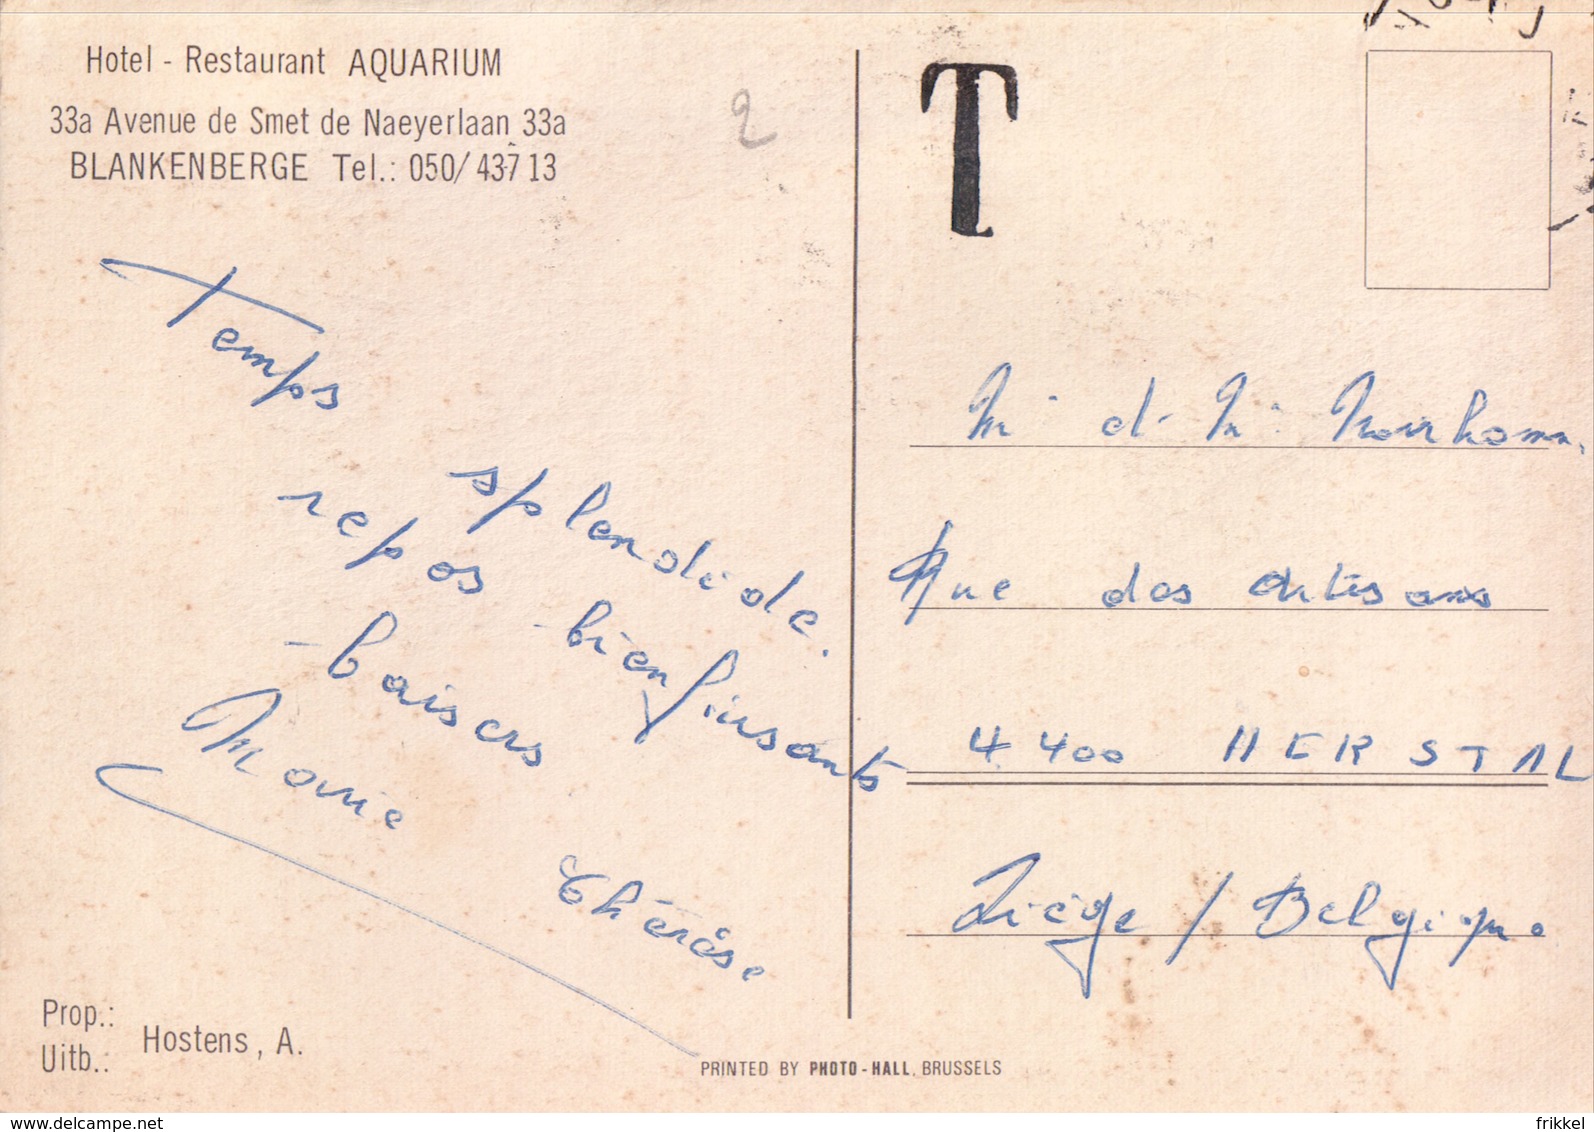 Hotel - Restaurant AQUARIUM
33a Avenue de Smet de Naeyerlaan 33a
BLANKENBERGE Tel.: 050/43713
2
T
Temps
splendide.
repos bienfaisants
- baisers
Marie
thérèse
Mr et Me
Rue des Artisans
4400 HERSTAL
Liége / Belgique
Prop.:
Uitb.: Hostens, A.
PRINTED BY PHOTO-HALL, BRUSSELS
www.delcampe.net
frikkel